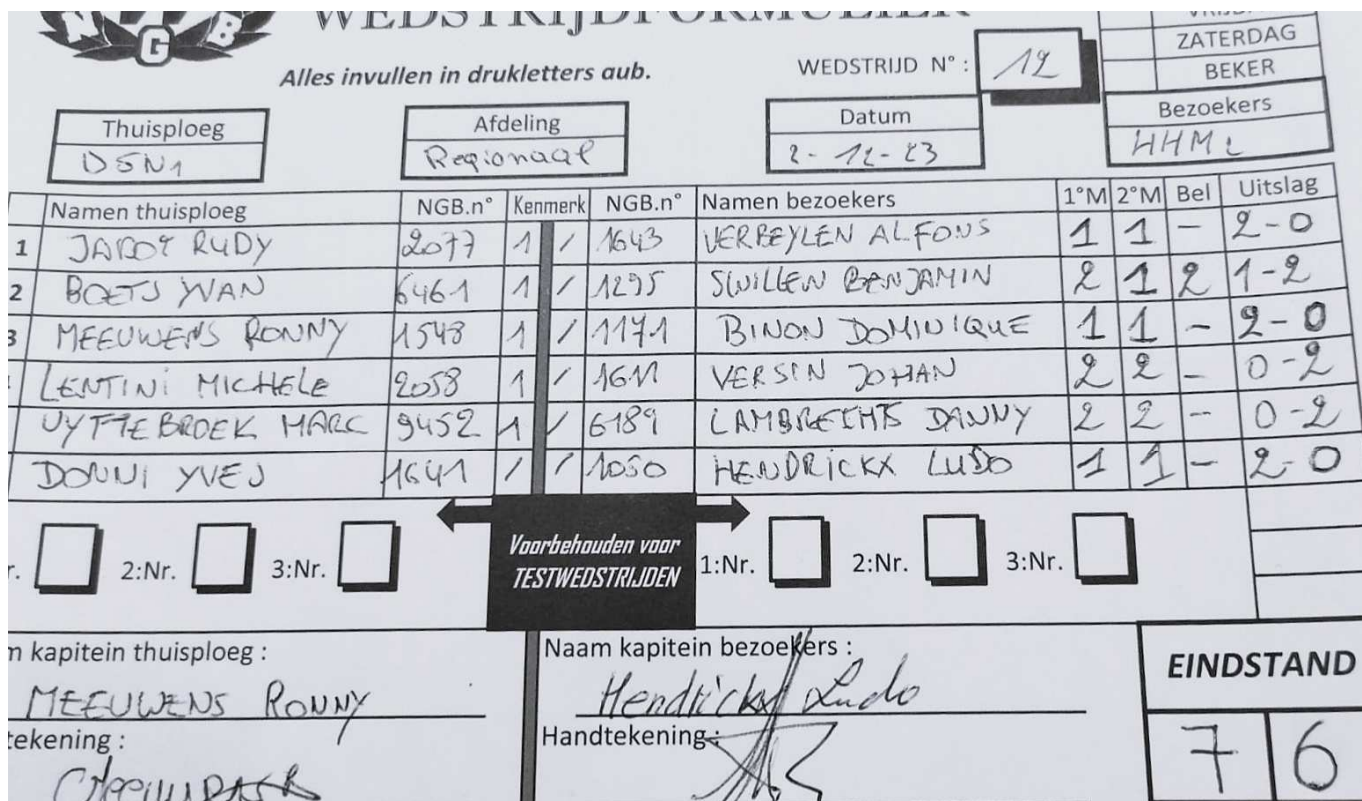 WEDSTRIJDFORMULIER
NGB
ZATERDAG
Alles invullen in drukletters aub.
WEDSTRIJD N° : 12
BEKER
Thuisploeg
Afdeling
Datum
Bezoekers
DSN1
Regionaal
2-12-23
Namen thuisploeg NGB.n° Kenmerk NGB.n° Namen bezoekers 1°M 2°M Bel Uitslag
1 JADOT RUDY 2077 1 / 1643 VERBEYLEN ALFONS 1 1 - 2-0
2 BOETS YVAN 6461 1 / 1295 SWILLEN BENJAMIN 2 1 2 1-2
3 MEEUWENS RONNY 1548 1 / 1171 BINON DOMINIQUE 1 1 - 2-0
LENTINI MICHELE 2058 1 / 1611 VERSIN JOHAN 2 2 - 0-2
UYTTEBROEK MARC 9452 1 / 6189 LAMBRECHTS DANNY 2 2 - 0-2
DONNI YVES 1641 / / 1050 HENDRICKX LUDO 1 1 - 2-0
Voorbehouden voor
TESTWEDSTRIJDEN
2:Nr. 3:Nr. 1:Nr. 2:Nr. 3:Nr.
kapitein thuisploeg :
MEEUWENS RONNY
Naam kapitein bezoekers :
Hendrickx Ludo
Handtekening :
EINDSTAND
7 6